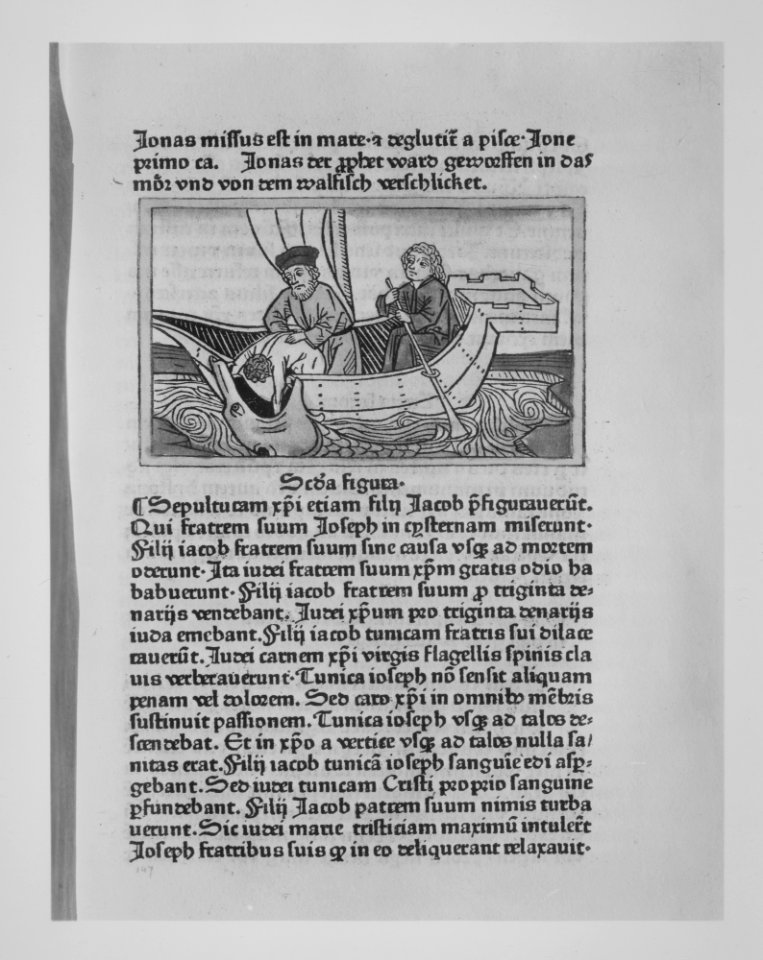 Jonas missus est in mare·⁊ deglutit̄ a pisce·Jone
primo ca. Jonas der ꝓphet ward geworffen in das
moͤr vnd von dem walfisch verschlicket.
Scd̄a figura·
¶Sepulturam xp̄i etiam filij Jacob p̄figurauerūt.
Qui fratrem suum Joseph in cysternam miserunt·
Filij iacob fratrem suum sine causa vsqꝫ ad mortem
oderunt·Ita iudei fratrem suum xp̄m gratis odio ha
babuerunt·Filij iacob fratrem suum ꝓ triginta de⸗
narijs vendebant. Judei xp̄um pro triginta denarijs
iuda emebant.Filij iacob tunicam fratris sui dilace
rauerūt.Judei carnem xp̄i virgis flagellis spinis cla
uis verberauerunt·Tunica ioseph nō sensit aliquam
penam vel dolorem. Sed caro xp̄i in omnibꝰ mēbris
sustinuit passionem.Tunica ioseph vsqꝫ ad talos de⸗
scendebat. Et in xp̄o a vertice vsqꝫ ad talos nulla sa/
nitas erat.Filij iacob tunicā ioseph sanguīe edi asꝑ⸗
gebant.Sed iudei tunicam Cristi proprio sanguine
ꝑfundebant. Filij Jacob patrem suum nimis turba
uerunt.Sic iudei marie tristiciam maximū intulert̄
Joseph fratribus suis ꝙ in eo deliquerant relaxauit·
147